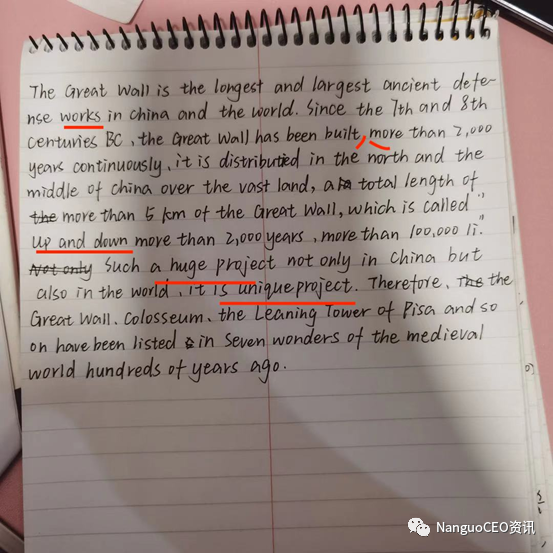 The Great Wall is the longest and largest ancient defe-
nse works in china and the world. Since the 7th and 8th
centuries BC, the Great Wall has been built, more than 2,000
years continuously, it is distributed in the north and the
middle of china over the vast land, a total length of
the more than 5 km of the Great Wall, which is called "
up and down more than 2,000 years, more than 100,000 li."
Not only Such a huge project not only in china but
also in the world, it is unique project. Therefore, The the
Great Wall. Colosseum. the Leaning Tower of Pisa and so
on have been listed in seven wonders of the medieval
world hundreds of years ago.
NanguoCEO资讯